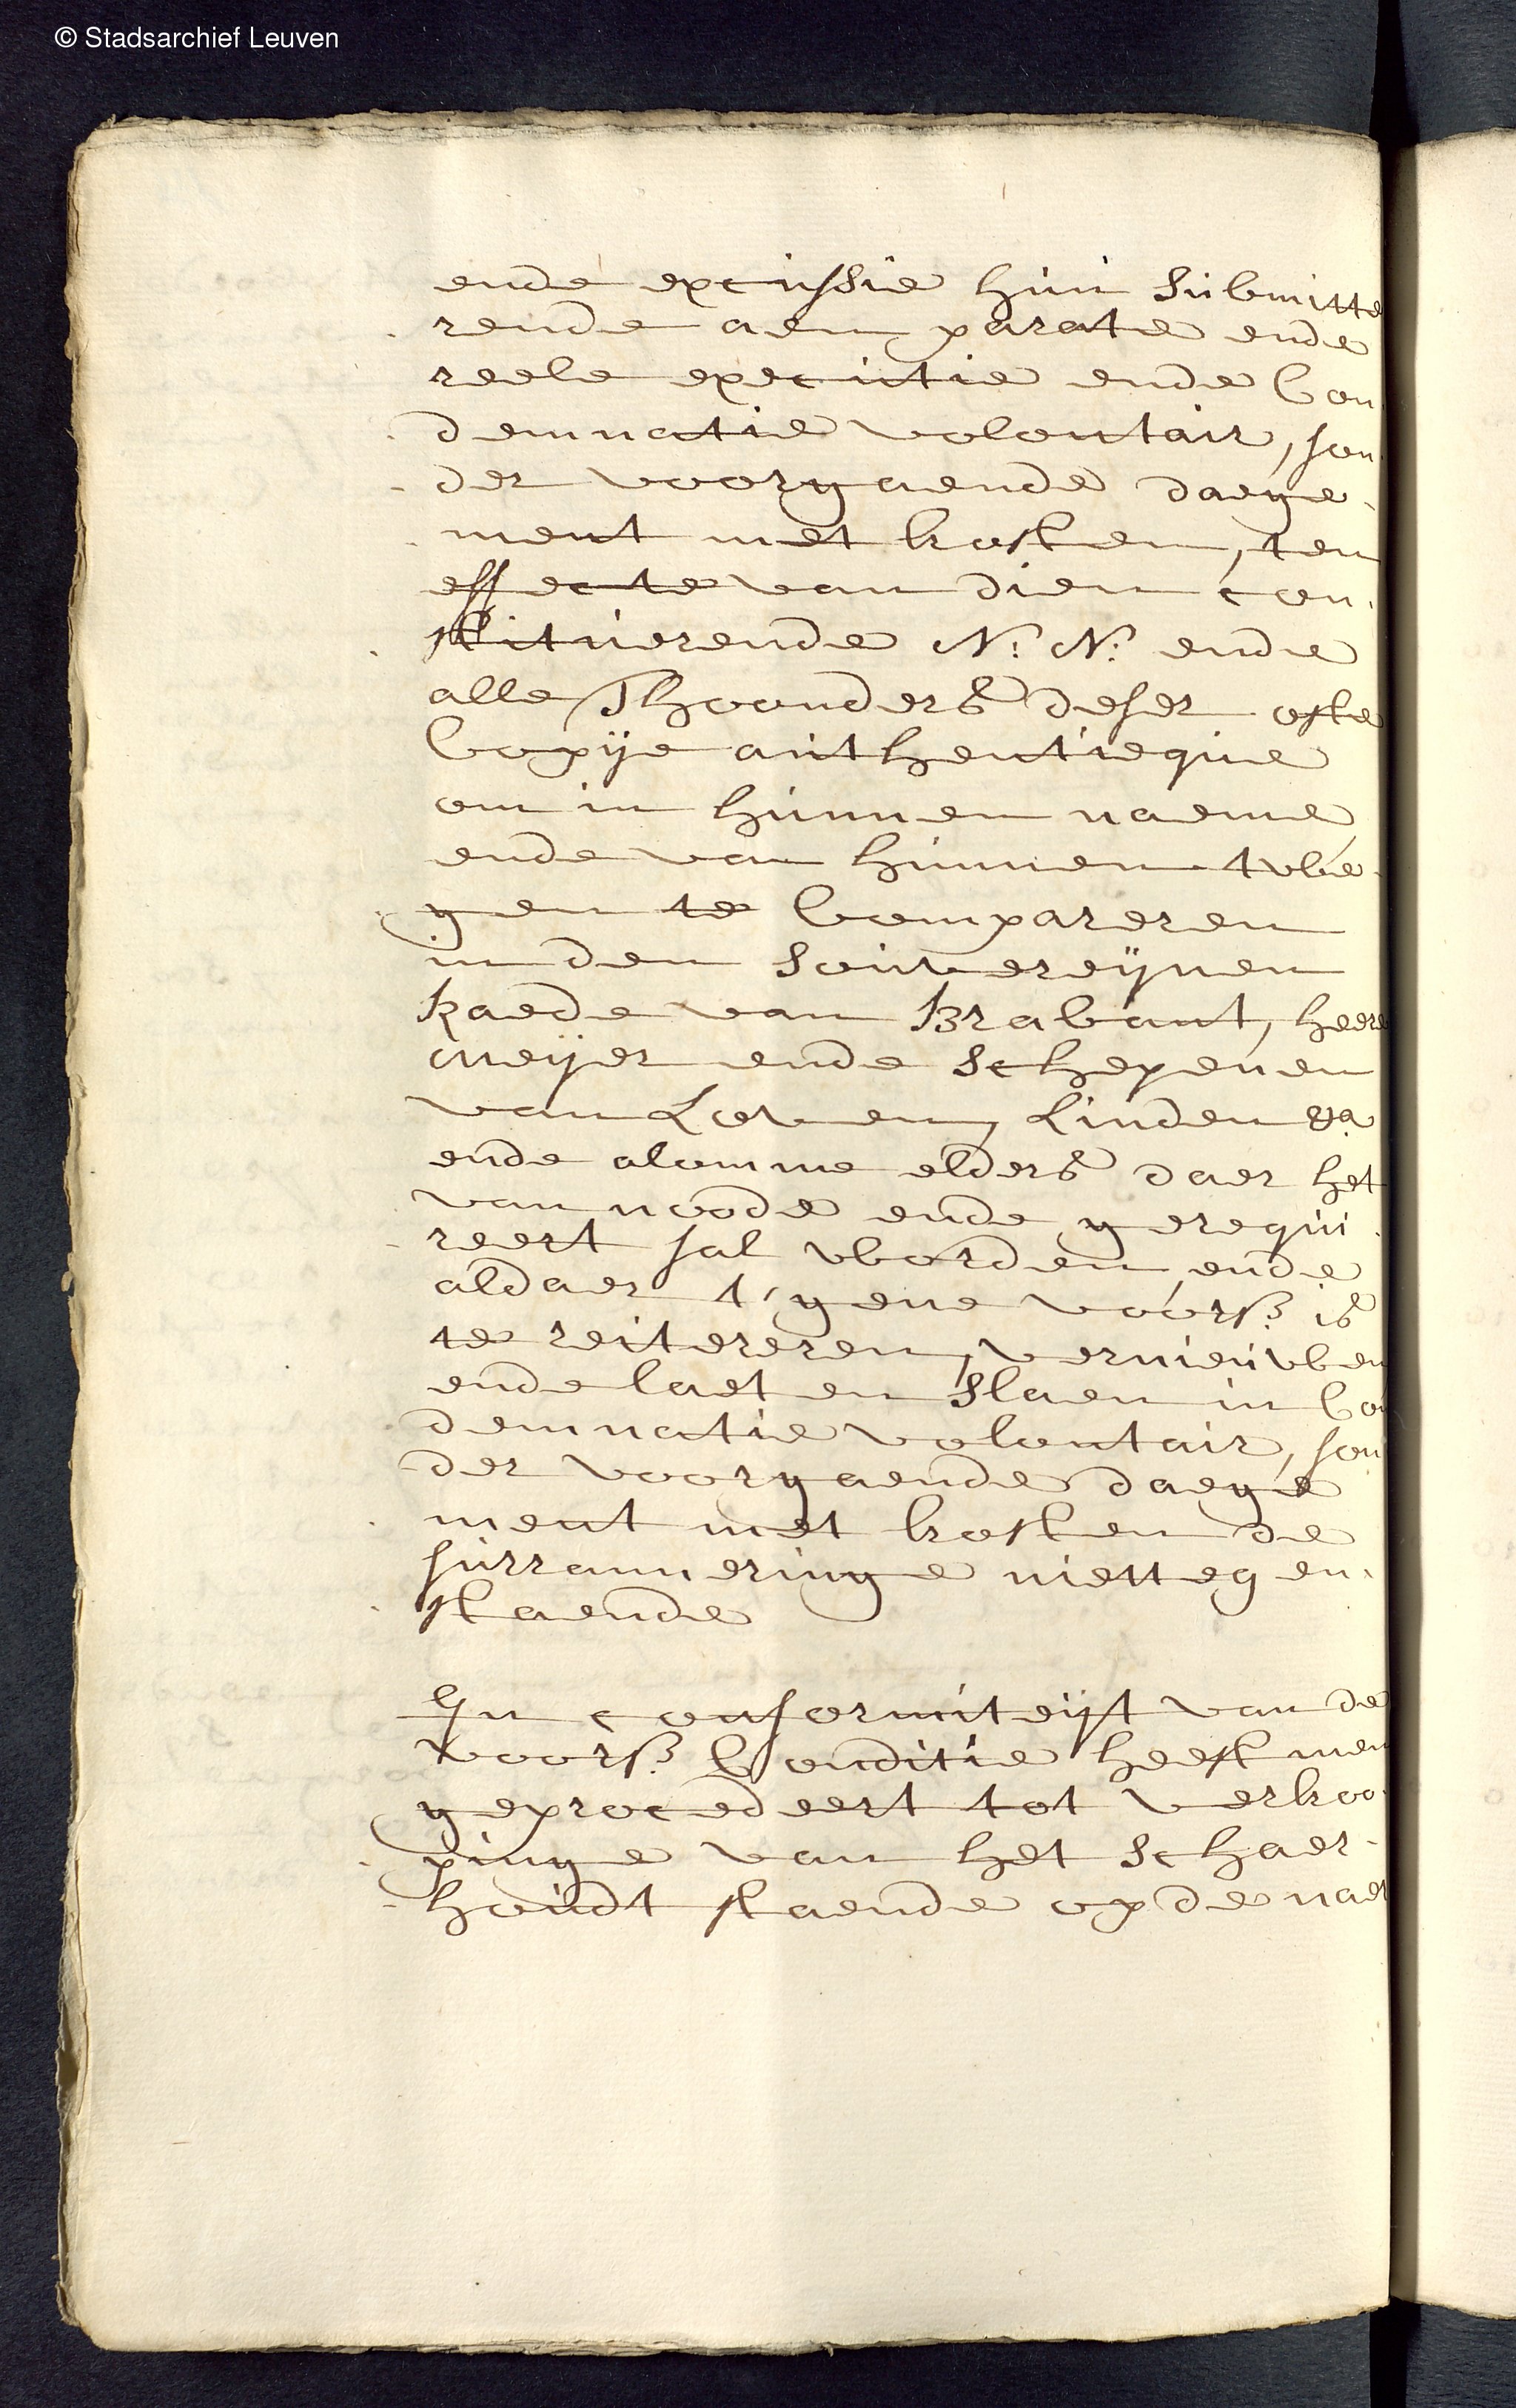 © Stadsarchief Leuven
ende excussie hun submitte
rende aen parate ende
reele executie ende Con
demnatie volontair, son
der voorgaende daege
ment met kosten, ten
effecte van dien con
stituerende N: N: ende
alle Thoonders deser ofte
Copÿe authentieque
om in hunnen naeme
ende van hunnen twe
gen te Compareren
in den souvereÿnen
Raede van Brabant, heere
meÿer ende schepenen
van Loven, Linden &a
ende alomme elders daer het
van noode ende gerequi
reert sal worden ende
aldaer t'gene voors: is
te reitereren, vernieuwen
ende laeten slaen in Con
demnatie volontair, son
der voorgaende daege
ment met kosten de
surranneringe niettegen
staende
In conformiteijt van de
voors: Conditie heeft men
geprocedeert tot verkoo
pinge van het schaer
houdt staende op de naer